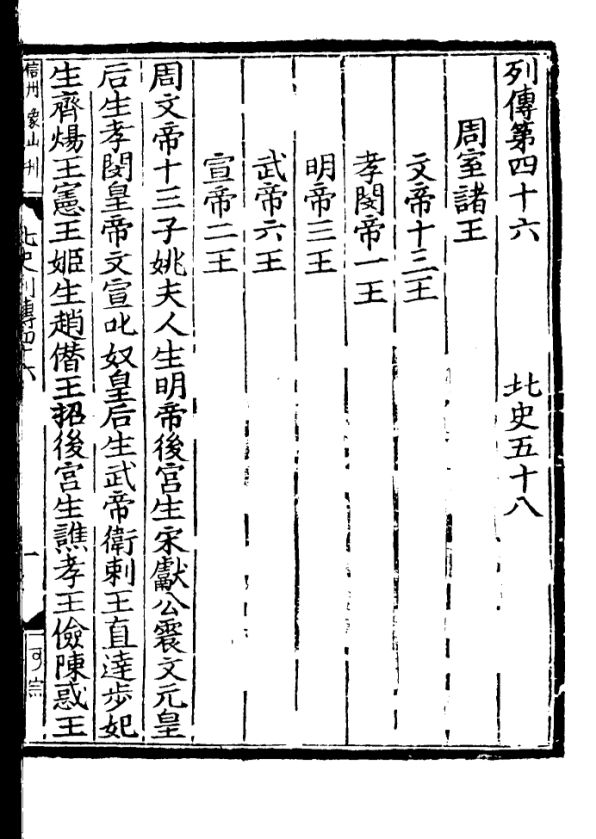 列傳第四十六　北史五十八
周室諸王
文帝十三王
孝閔帝一王
明帝三王
武帝六王
宣帝二王
周文帝十三子姚夫人生明帝後宮生宋獻公震文元皇
后生孝閔皇帝文宣叱奴皇后生武帝衛剌王直達步妃
生齊煬王憲王姬生趙僭王招後宮生譙孝王儉陳惑王
信州象山刊
北史列傳四十六
一